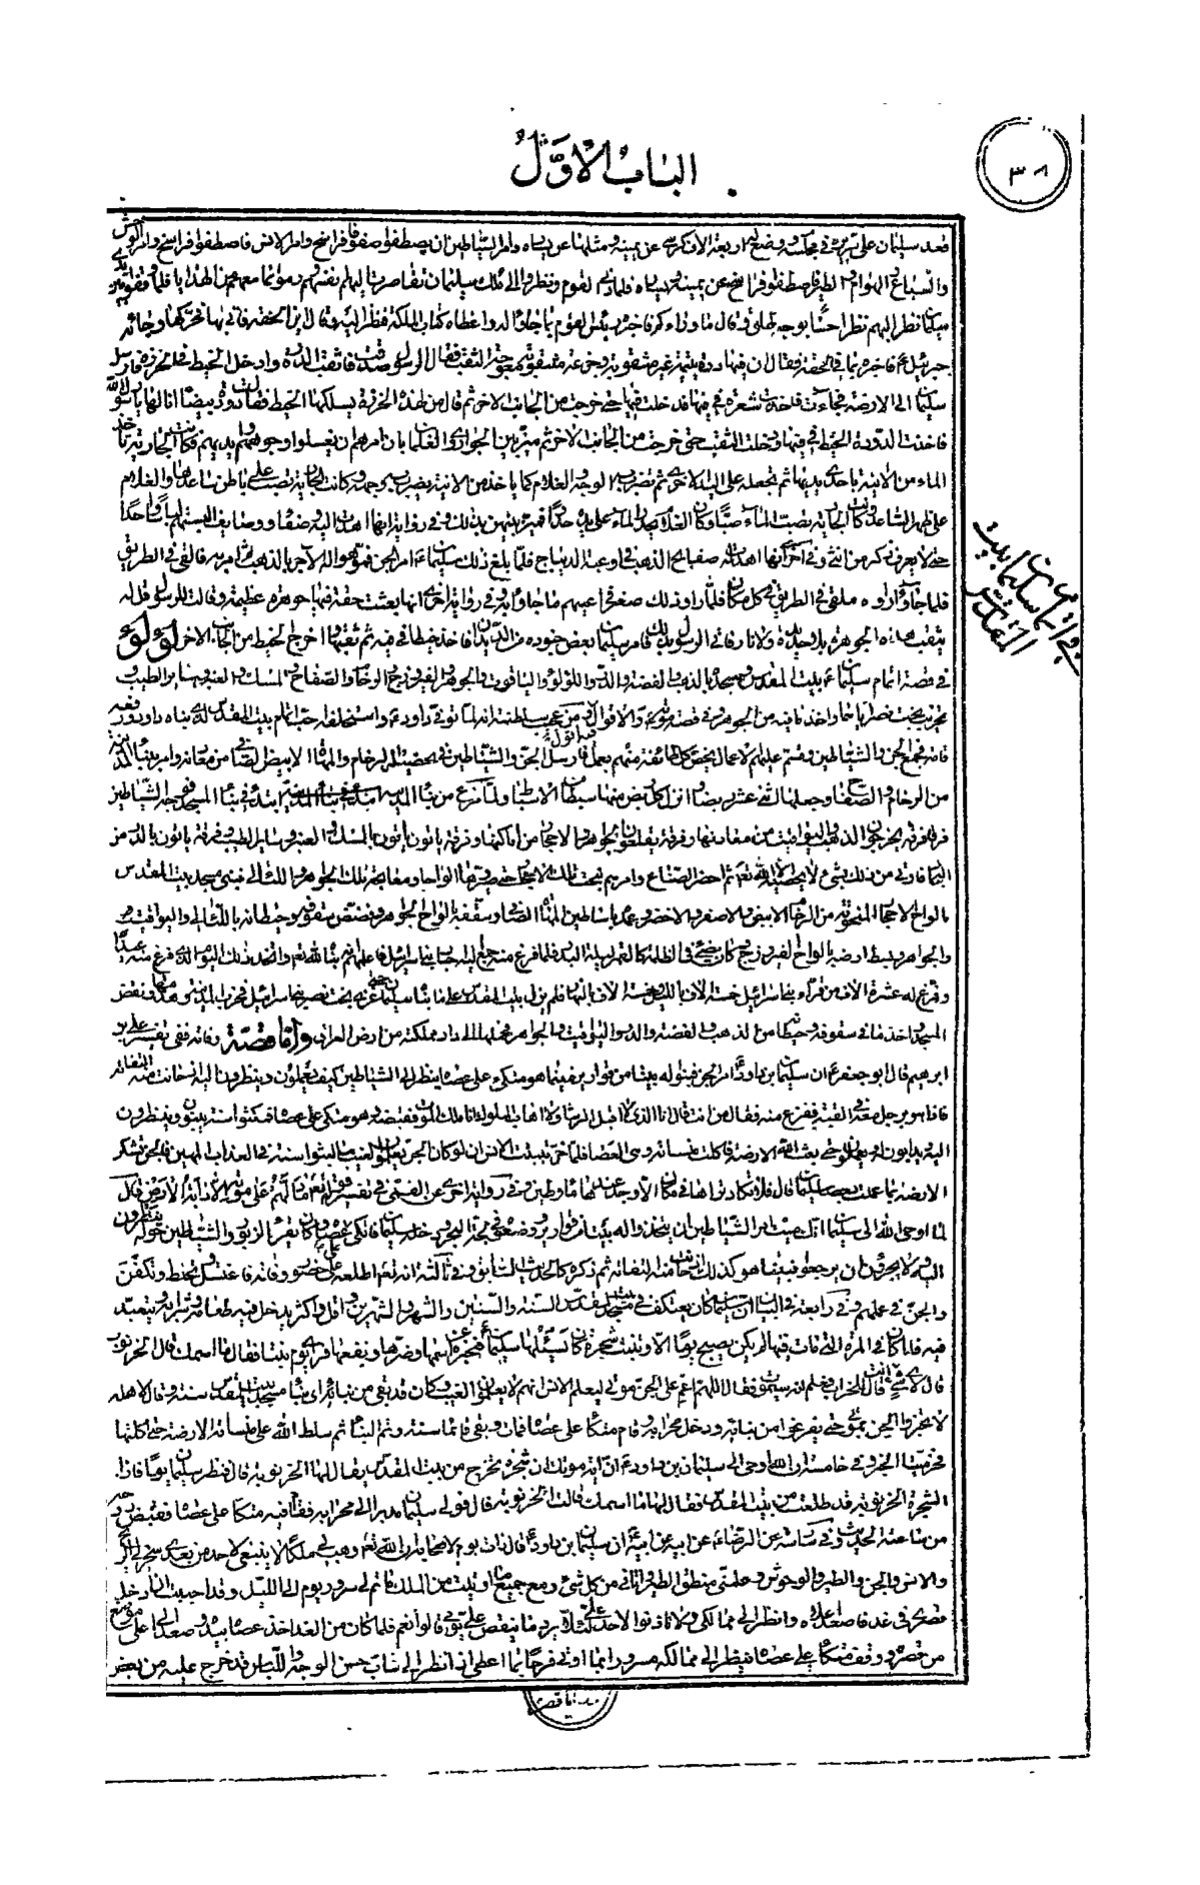 ٣٨
الباب الأوّل
قعد سليمان على سريره في مجلسه ووضع له اربعة الاف كرسي عن يمينه ومثلها عن يساره وامر الشياطين ان يصطفوا صفوفا فراسخ وامر الانس فاصطفوا فراسخ وامر الوحوش
والسباع والهوام والطير فاصطفوا فراسخ عن يمينه ويساره فلما دنى القوم ونظروا الى ملك سليمان تقاصرت اليهم نفسهم ورموا بما معهم من الهدايا فلما وقفوا بين يدي
سليمان نظر اليهم نظرا حسنا بوجه طلق وقال ما وراءكم فاخبره رئيس القوم بما جاؤا له واعطاه كتاب الملكة فنظر اليه وقال اين الحقة فاتي بها فحركها وجائه
جبرئيل ع فاخبره بما في الحقة فقال ان فيها درة يتيمة غير مثقوبة وجزعة مثقوبة معوجة الثقب فقال الرسول صدقت فاثقب الدرة وادخل الخيط في الخرزة فارسل
سليمان الى الارضة فجاءت فاخذت شعرة في فيها فدخلت فيها حتى خرجت من الجانب الاخر ثم قال من لهذه الخرزة يسلكها الخيط فقالت دودة بيضاء انا لها يا رسول الله
فاخذت الدودة الخيط في فيها ودخلت الثقب حتى خرجت من الجانب الاخر ثم ميز بين الجواري والغلمان بان امرهم ان يغسلوا وجوههم وايديهم فكانت الجارية تاخذ
الماء من الانية باحدى يديها ثم تجعله على اليد الاخرى ثم تضرب به الوجه والغلام كما ياخذ من الانية يضرب به وجهه وكانت الجارية تصب على باطن ساعدها والغلام
على ظهر الساعد وكانت الجارية تصب الماء صبا وكان الغلام يحدر الماء على يده حدرا فميز بينهن بذلك وفي رواية انها اهدت اليه وصفاء ووصايف البستهم لباسا واحدا
حتى لا يعرف ذكر من انثى وفي اخرى انها اهدت له صفايح الذهب في اوعية الديباج فلما بلغ ذلك سليمان ع امر الجن فموهوا له الآجر بالذهب ثم امر به فالقي في الطريق
فلما جاؤا راوه ملقى في الطريق في كل مكان فلما راوا ذلك صغر في اعينهم ما جاؤا به وفي رواية اخرى انها بعثت حقة فيها جوهرة عظيمة وقالت للرسول قل له
يثقب هذه الجوهرة بلا حديد ولا نار فاتى الرسول بذلك فامر سليمان بعض جنوده من الديدان فاخذ خيطا في فيه ثم ثقبها اخرج الخيط من الجانب الاخر لؤلؤ
في قصة اتمام سليمان ع بيت المقدس ومسجده بالذهب والفضة والدر واللؤلؤ والياقوت والجوهر والفيروزج والرخام والصفاح والمسك والعنبر وساير الطيب
تخريب بخت نصر ياها واخذ ما فيه من الجوهر وفي قصة موته والاقوال فيه من عجيب سلطنته انه لما توفي داود ع واستخلفه احب اتمام بيت المقدس الذي بناه داود ورفعه
قامة فجمع الجن والشياطين وقسم عليهم الاعمال يخص كل طائفة منهم بعمل فارسل الجن والشياطين في تحصيل الرخام والمها الابيض الصافي من معادنه وامر ببناء المدينة
من الرخام والصفاح وجعلها اثني عشر ربضا وانزل كل ربض منها سبطا من الاسباط ولما فرغ من بناء المدينة ابتدء في بناء المسجد فوجه الشياطين
فرقا فرقة يخرجون الذهب واليواقيت من معادنها وفرقة يقلعون الجواهر والاحجار من اماكنها وفرقة ياتون بالمسك والعنبر وساير الطيب وفرقة ياتون بالدر من
البحار فاوتي من ذلك بشيء لا يحصيه الا الله تعالى ثم احضر الصناع وامرهم بنحت تلك الاحجار حتى صيروها الواحا ومعالجة تلك الجواهر واللآلي فبنى مسجد بيت المقدس
بالواح الاحجار المنحوتة من الرخام الابيض والاصفر والاخضر وعمده باساطين المها الصافي وسقفه بالواح الجواهر وفصص سقوفه وحيطانه باللآلي واليواقيت
والجواهر وبسط ارضه بالواح الفيروزج كان يضيء في الظلمة كالقمر ليلة البدر فلما فرغ منه جمع اليه احبار بني اسرائيل فاعلمهم انه بناه لله تعالى واتخذ ذلك اليوم الذي فرغ منه عيدا
وقرغ له عشرة الاف من قراء بني اسرائيل خمسة الاف بالليل وخمسة الاف بالنهار فلم يزل بيت المقدس على ما بناه سليمان حتى غزى بخت نصر بني اسرائيل فخرب المدينة وهدمها ونقض
المسجد واخذ ما في سقوفه وحيطانه من الذهب والفضة والدر واليواقيت والجواهر فحملها الى دار مملكته من ارض العراق واما قصة وفاته ففي تفسير علي بن
ابرهيم قال ابو جعفر ع ان سليمان بن داود ع امر الجن فبنوا له بيتا من قوارير فبينما هو متكئ على عصاه ينظر الى الشياطين كيف يعملون وينظرون اليه اذ حانت منه التفاتة
فاذا هو برجل معه في القبة ففزع منه فقال من انت قال انا الذي لا اقبل الرشا ولا اهاب الملوك انا ملك الموت فقبضه وهو متكئ على عصاه فمكثوا سنة يبنون وينظرون
اليه ويدابون له ويعملون حتى بعث الله الارضة فاكلت منساته وهي العصا فلما خر تبينت الانس ان لو كان الجن يعلمون الغيب ما لبثوا سنة في العذاب المهين فالجن تشكر
الارضة بما عملت بعصا سليمان قال فلا تكاد تراها في مكان الا وجد عندها ماء وطين وفي رواية اخرى عن القمي في تفسير قوله تعالى ما دلهم على موته الا دابة الارض قال
لما اوحى الله الى سليمان انك ميت امر الشياطين ان يتخذوا له بيتا من قوارير ووضعوه في لجة البحر ودخله سليمان فاتكى على عصاه وكان يقرء الزبور والشياطين حوله ينظرون
اليه ولا يجرؤن ان يرجعوا فبينما هو كذلك اذ حانت منه التفاتة ثم ذكره كالحديث السابق وفي ثالثة انه تعالى اطلعه على حضور وفاته فاغتسل وتحنط وتكفن
والجن في عملهم وفي رابعة في البيان ان سليمان كان يعتكف في مسجد بيت المقدس السنة والسنتين والشهر والشهرين واقل واكثر يدخل فيه طعامه وشرابه ويتعبد
فيه فلما كان في المرة التي مات فيها لم يكن يصبح يوما الا وتنبت شجرة كان يسئلها سليمان فتخبره عن اسمها وضرها ونفعها فراى يوما نبتا فقال ما اسمك قال الخرنوب
قال لاي شيء انت قال للخراب فعلم انه سيموت فقال اللهم اعم على الجن موتي ليعلم الانس انهم لا يعلمون الغيب وكان قد بقي من بنائه اي بناء مسجد بيت المقدس سنة وقال لاهله
لا تخبروا الجن بموتي حتى يفرغوا من بنائه ودخل محرابه وقام متكئا على عصاه فمات وبقي قائما سنة وتم البناء ثم سلط الله على منساته الارضة حتى اكلتها
فخر ميتا الخبر وفي خامسة ان الله اوحى الى سليمان بن داود ع ان آية موتك ان شجرة تخرج من بيت المقدس يقال لها الخرنوبة قال فنظر سليمان يوما فاذا
الشجرة الخرنوبة قد طلعت من بيت المقدس فقال لها ما اسمك قالت الخرنوبة قال فولى سليمان مدبرا الى محرابه فقام فيه متكئا على عصاه فقبض روحه
من ساعته الحديث وفي سادسة عن الرضا ع عن ابيه عن ابيه ع ان سليمان بن داود ع قال ذات يوم لاصحابه ان الله تعالى وهب لي ملكا لا ينبغي لاحد من بعدي سخر لي الريح
والانس والجن والطير والوحوش وعلمني منطق الطير واتاني من كل شيء ومع جميع ما اوتيت من الملك فما تم لي سرور يوم الى الليل وقد احببت ان ادخل
قصري في غد فاصعد اعلاه وانظر الى ممالكي ولا تاذنوا لاحد علي لئلا يرد ما ينغص علي يومي قالوا نعم فلما كان من الغد اخذ عصاه بيده وصعد الى اعلى موضع
من قصره ووقف متكئا على عصاه ينظر الى ممالكه مسرورا بما اوتي فرحا بما اعطي اذ انظر الى شاب حسن الوجه واللباس قد خرج عليه من بعض
في اتمام سليمان بيت المقدس